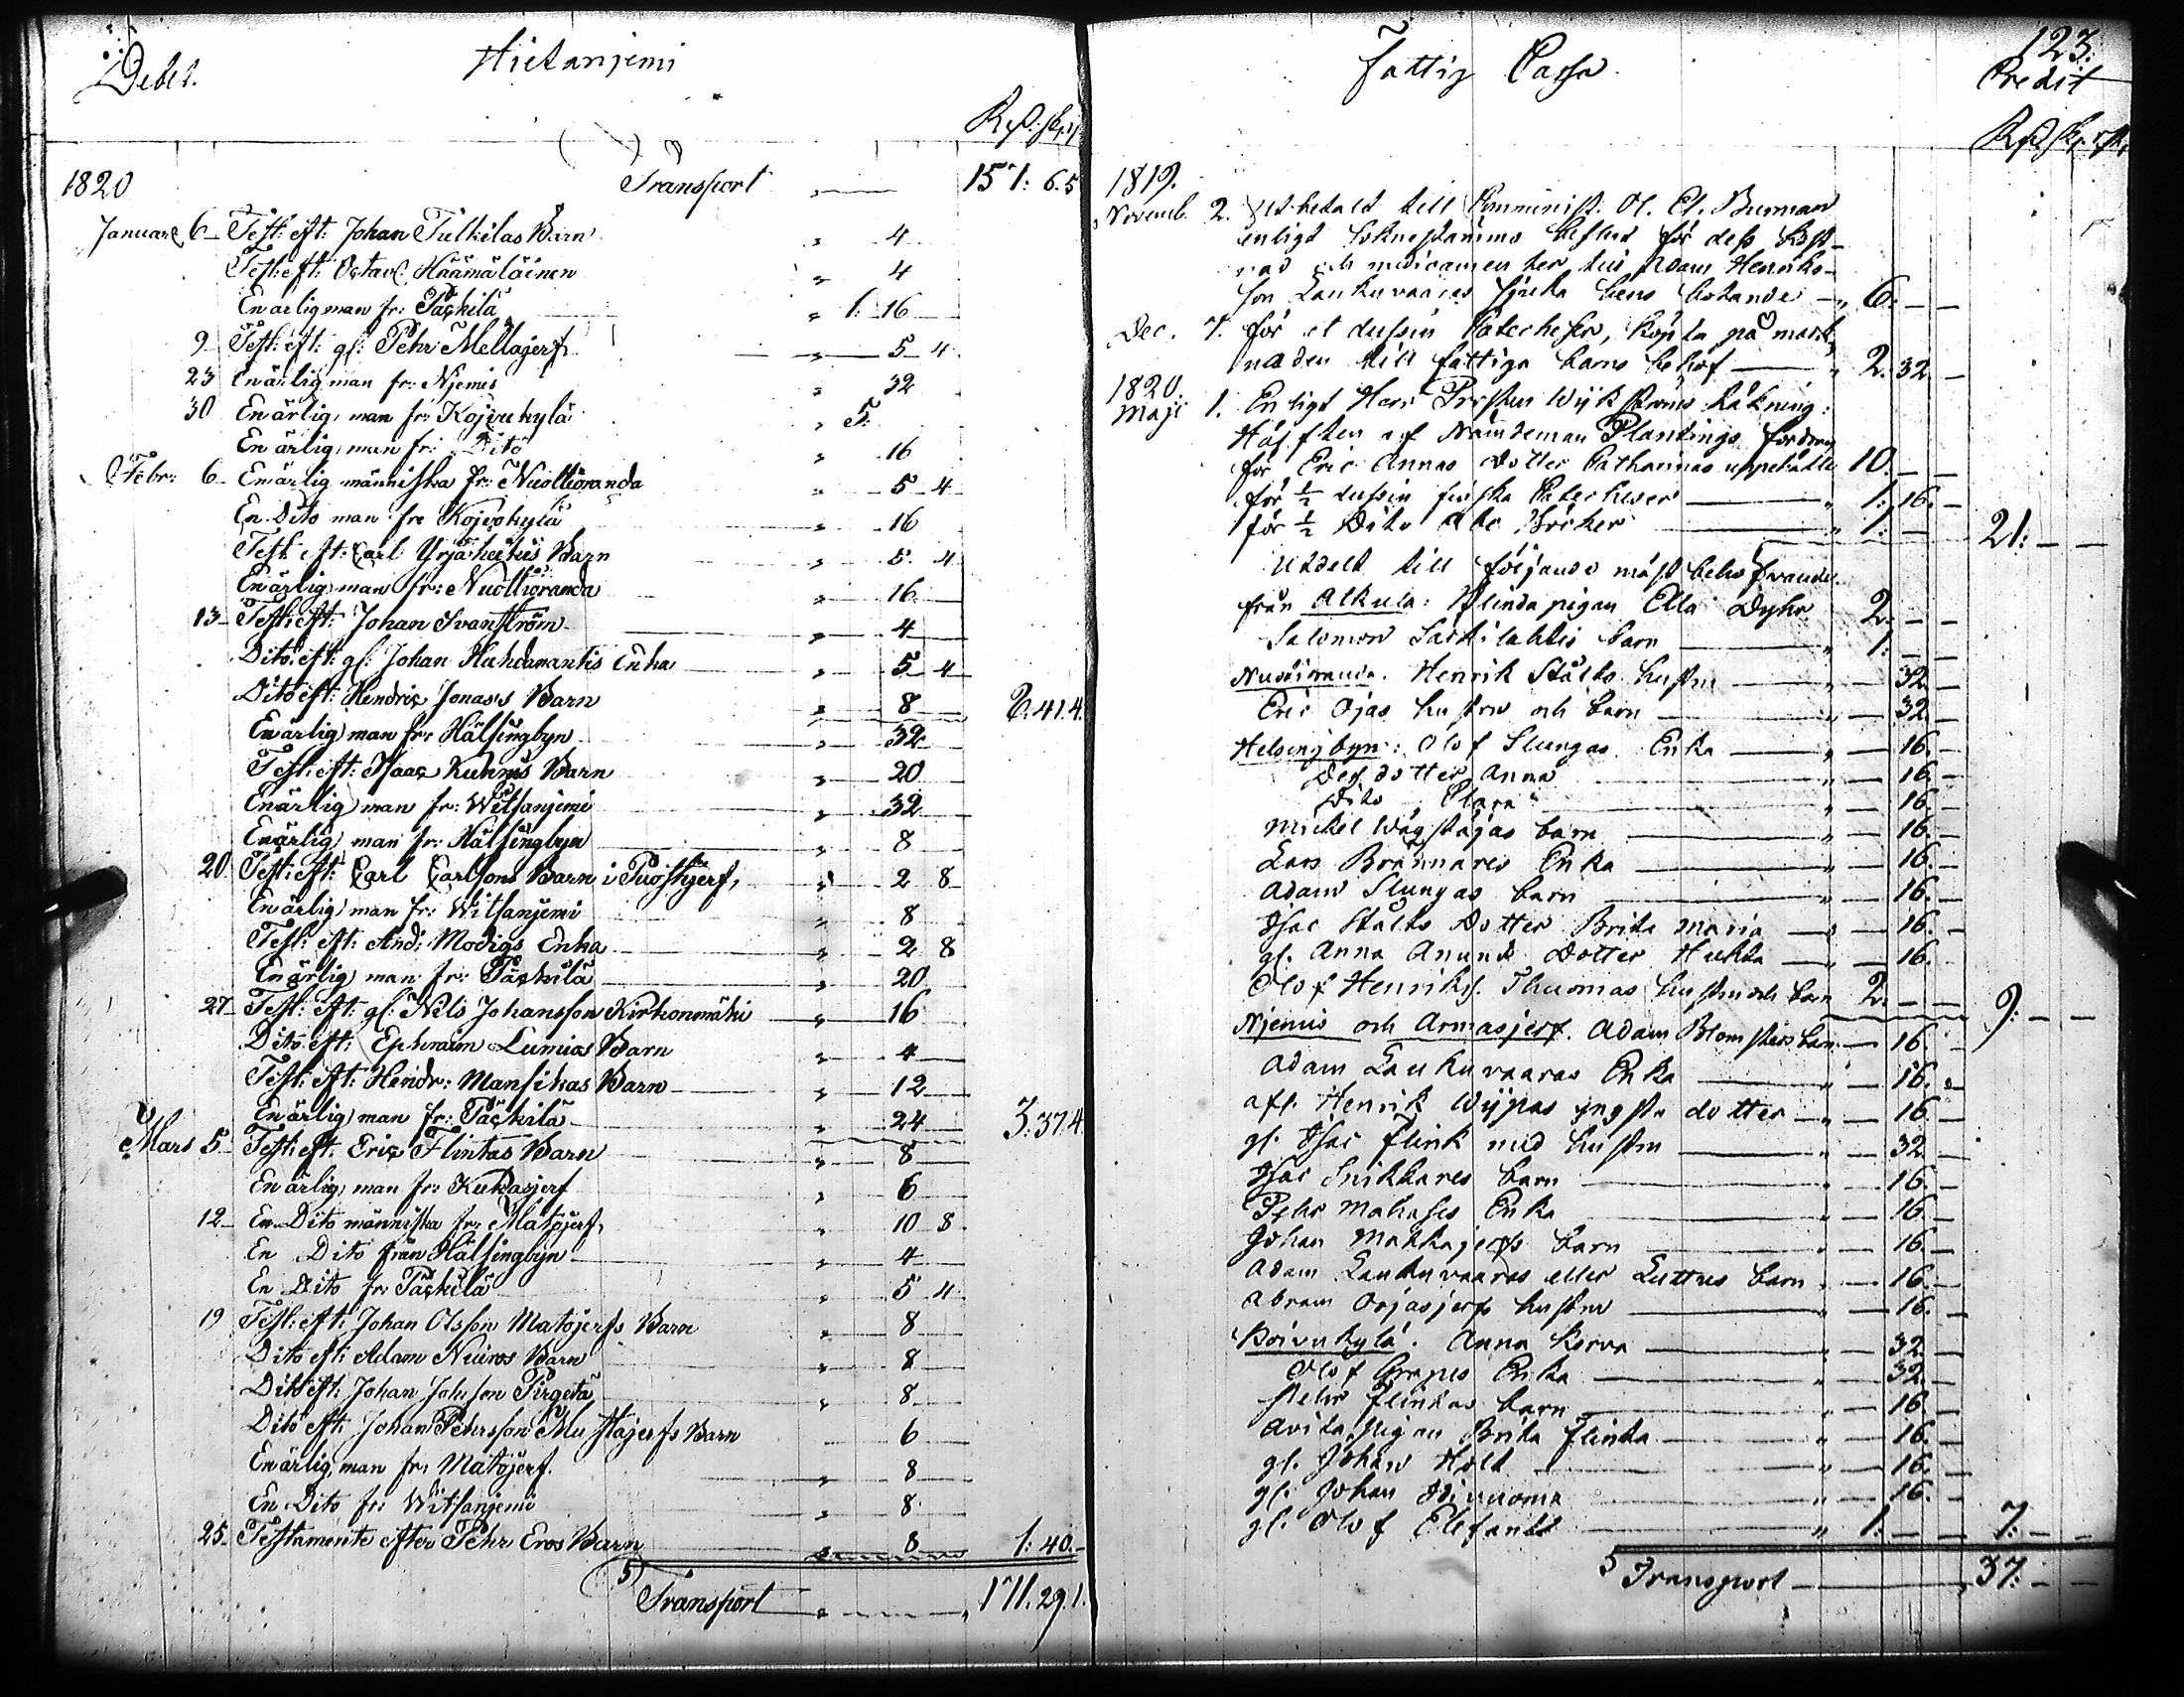 Debet. Hietanjemi
Rd: sk: r
1820 Transport " 157: 6. 5
Januari 6 Test: eft: Johan Tulkilas Barn " 4
Test: eft: Gustav Häämäläinen " 4
En ärlig man fr: Päckilä " 1: 16
9 Test: eft: gl: Pehr Mellajerf " 5 4
23 En ärlig man fr: Njemis " 32
30 En ärlig man fr: Kojvukylä " 5:
En ärlig man fr: Dito " 16
Febr: 6 En ärlig människa fr: Nuottioranda " 5 4
En Dito man fr: Kojvukylä " 16
Test: eft: Carl Yrjäheikis Barn " 5. 4
En ärlig man fr: Nuottioranda " 16
13 Test: eft: Johan Svanström " 4
Dito eft: gl: Johan Huhdamantis Enka " 5 4
Dito eft: Hendric Jonas's Barn " 8 6. 41. 4.
En ärlig man fr: Hälsingbyn " 32
Test: eft: Isaac Kuhnus Barn " 20
En ärlig man fr: Witsanjemi " 32
En ärlig man fr: Hälsingbyn " 8
20 Test: eft: Carl Carlsons Barn i Puoskjerf, " 2 8
En ärlig man fr: Witsanjemi " 8
Test: eft: And: Modigs Enka " 2 8
En ärlig man fr: Päckilä " 20
27 Test: eft: gl: Nils Johansson Kirkonmäki " 16
Dito eft: Ephraim Lumias Barn " 4
Test: eft: Hendr: Mansikas Barn " 12
En ärlig man fr: Päckilä " 24 3: 37. 4.
Mars 5 Test: eft: Eric Flinkas Barn " 8
En ärlig man fr: Kukasjerf " 6
12 En Dito människa fr: Matojerf, " 10 8
En Dito från Hälsingbyn " 4
En Dito fr: Päckilä " 5 4
19 Test: eft: Johan Olsson Matojerfs Barn " 8
Dito eft: Adam Niuros Barn " 8
Dito eft: Johan Johnson Pirgetä " 8
Dito eft: Johan Pehrsson Mustajerfs Barn 6
En ärlig man fr: Matojerf. " 8
En Dito fr: Witsanjemi " 8
25 Testamente efter Pehr Eros Barn " 8 1: 40.
5) Transport " 171. 29. 1.
Fattig Cassa. 123.
Credit
Rd sk. rst
1819.
Novemb. 2. Utbetalt till Comminist. Ol. El. Burman
enligt Soknestämmo beslut för dess kost-
nad och medicamenter till Adam Henriks-
son Laukuvaaras sjuka bens botande " 6: —
Dec. 7. för et dussin Catecheser, köpta på mark-
naden till fattiga barns behof " 2. 32 —
1820.
Maji 1. Enligt Herr Prosten Wijkströms räkning:
Hälften af Nämndeman Plantings fordran
för Eric Annas Dotter Catharinas uppehälle 10. —
för ½ dussin finska Catecheser " 1: 16. —
för ½ Dito Abc Böcker " 1: — 21: — —
Utdelt till följande mäst behöfvande.
från Alkula: Blinda pigan Ella Dyhr 2. — —
Salomon Saikilahtis barn " 1: — —
Nuottioranda. Henrik Stålts hustru " 32 —
Eric Ojas hustru och barn " 32 —
Helsingbyn: Olof Slungas Enka " 16. —
Dess dotter Anna " 16. —
Dito " Clara " 16. —
Mickel Wägstajas barn " 16. —
Lars Brännares Enka " 16. —
Adam Slungas barn " 16. —
Isac Stålts Dotter Brita Maria " 16. —
gl. Anna Anunds Dotter Huhta " 16. —
Olof Henrikss. Thuomas hustru och barn 2. — — 9: — —
Njemis och Armasjerf. Adam Blomsters barn — 16. —
Adam Laukuvaaras Enka " 16. —
afl. Henrik Wijpas yngsta dotter " 16. —
gl. Isac Flink med hustru " 32 —
Isac Snikkares barn " 16. —
Pehr Mahases Enka " 16. —
Johan Makkajerfs barn " 16. —
Adam Laukuvaaras eller Luttus barn " 16. —
Abram Orjasjerfs hustru " 16. —
Koivukylä. Anna Korva " 32 —
Olof Grapes Enka " 32 —
Pehr Flinkas barn " 16. —
Brita Flinka " 16. —
gl. Johan Holt " 16. —
gl. Johan " 16. —
gl. Olof Elefandt " 1: — — 7: — —
5 Transport " 37: — —